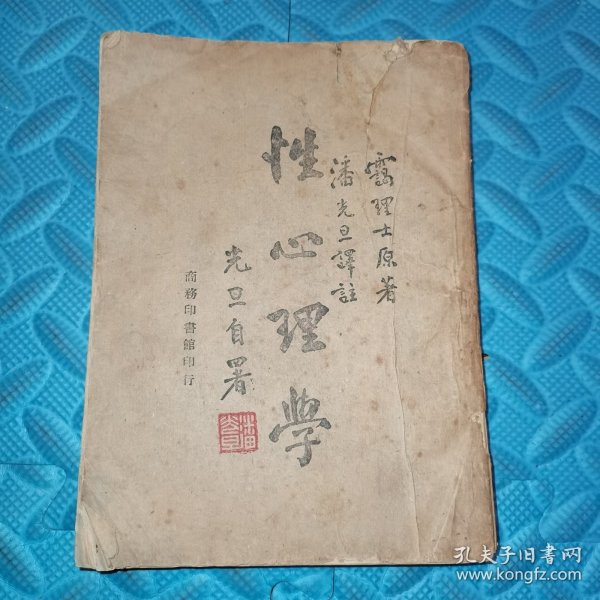 靄理士原著
潘光旦譯註
性心理學
光旦自署
潘光旦
商務印書館印行
孔夫子旧书网
www.kongfz.com